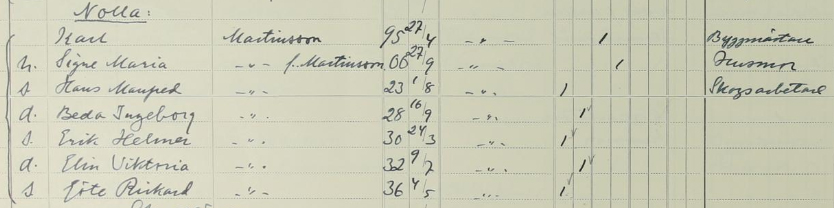 Nolla:
Karl Martinsson 95 27/4 -"- 1 Byggmästare
h. Signe Maria -"- f. Martinsson 00 27/9 -"- 1 Husmor
s Hans Manfred -"- 23 1/8 -"- 1 Skogsarbetare
d. Beda Ingeborg -"- 28 16/9 -"- 1
s. Erik Helmer -"- 30 24/3 1
d. Elin Viktoria -"- 32 9/7 -"- 1
s Göte Rickard -"- 36 4/5 -"- 1